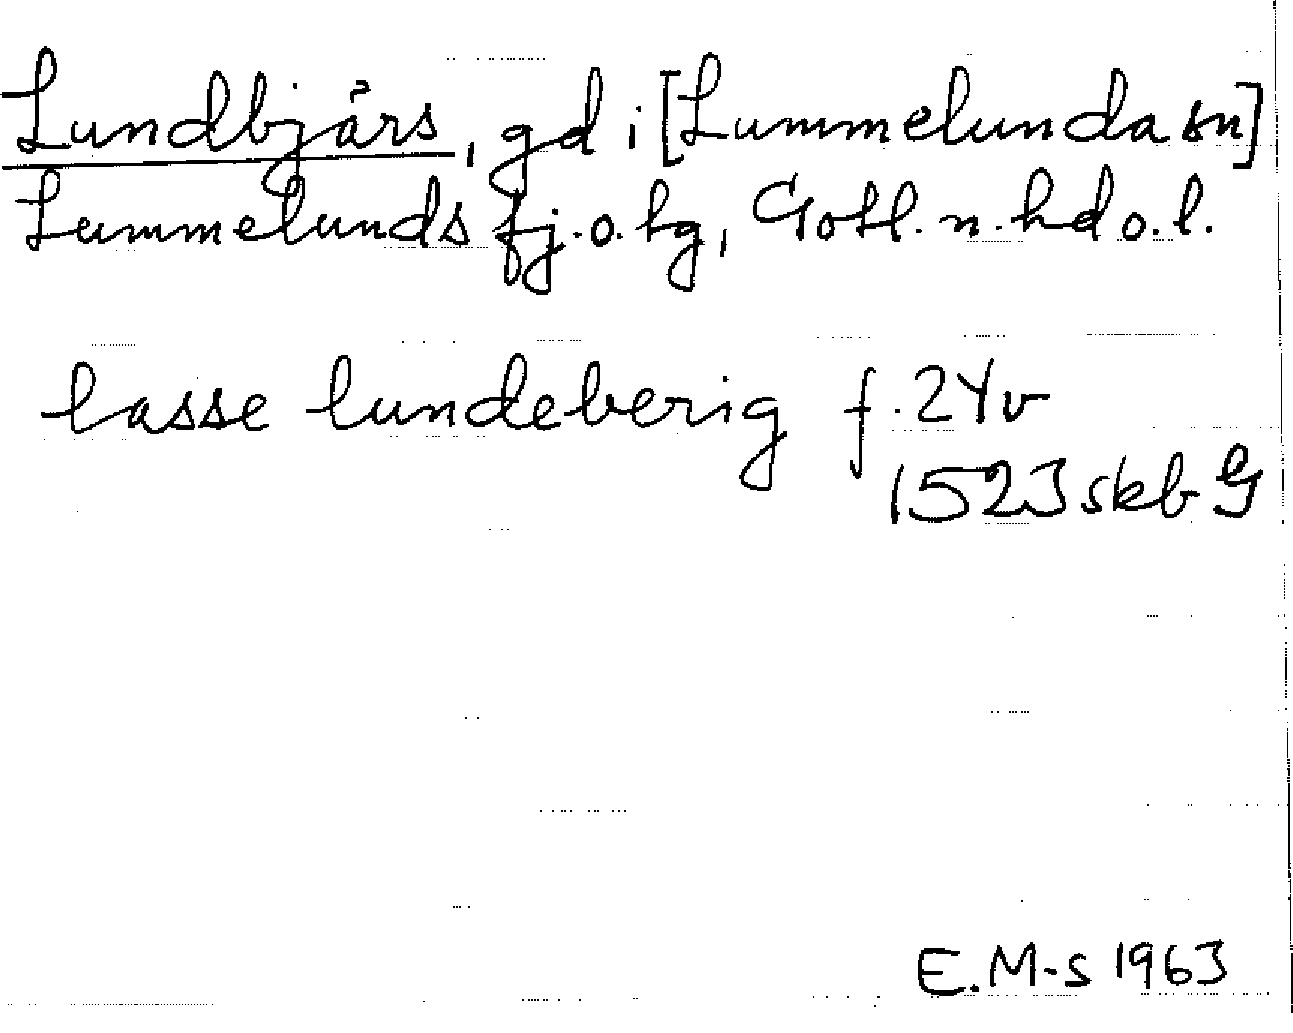 Lundbjärs, gd i [Lummelunda sn]
Lummelunds fj. o. hg, Gotl. n. hd o. l.
lasse lundeberig f. 24v
1523 skb G
E. M-s 1963